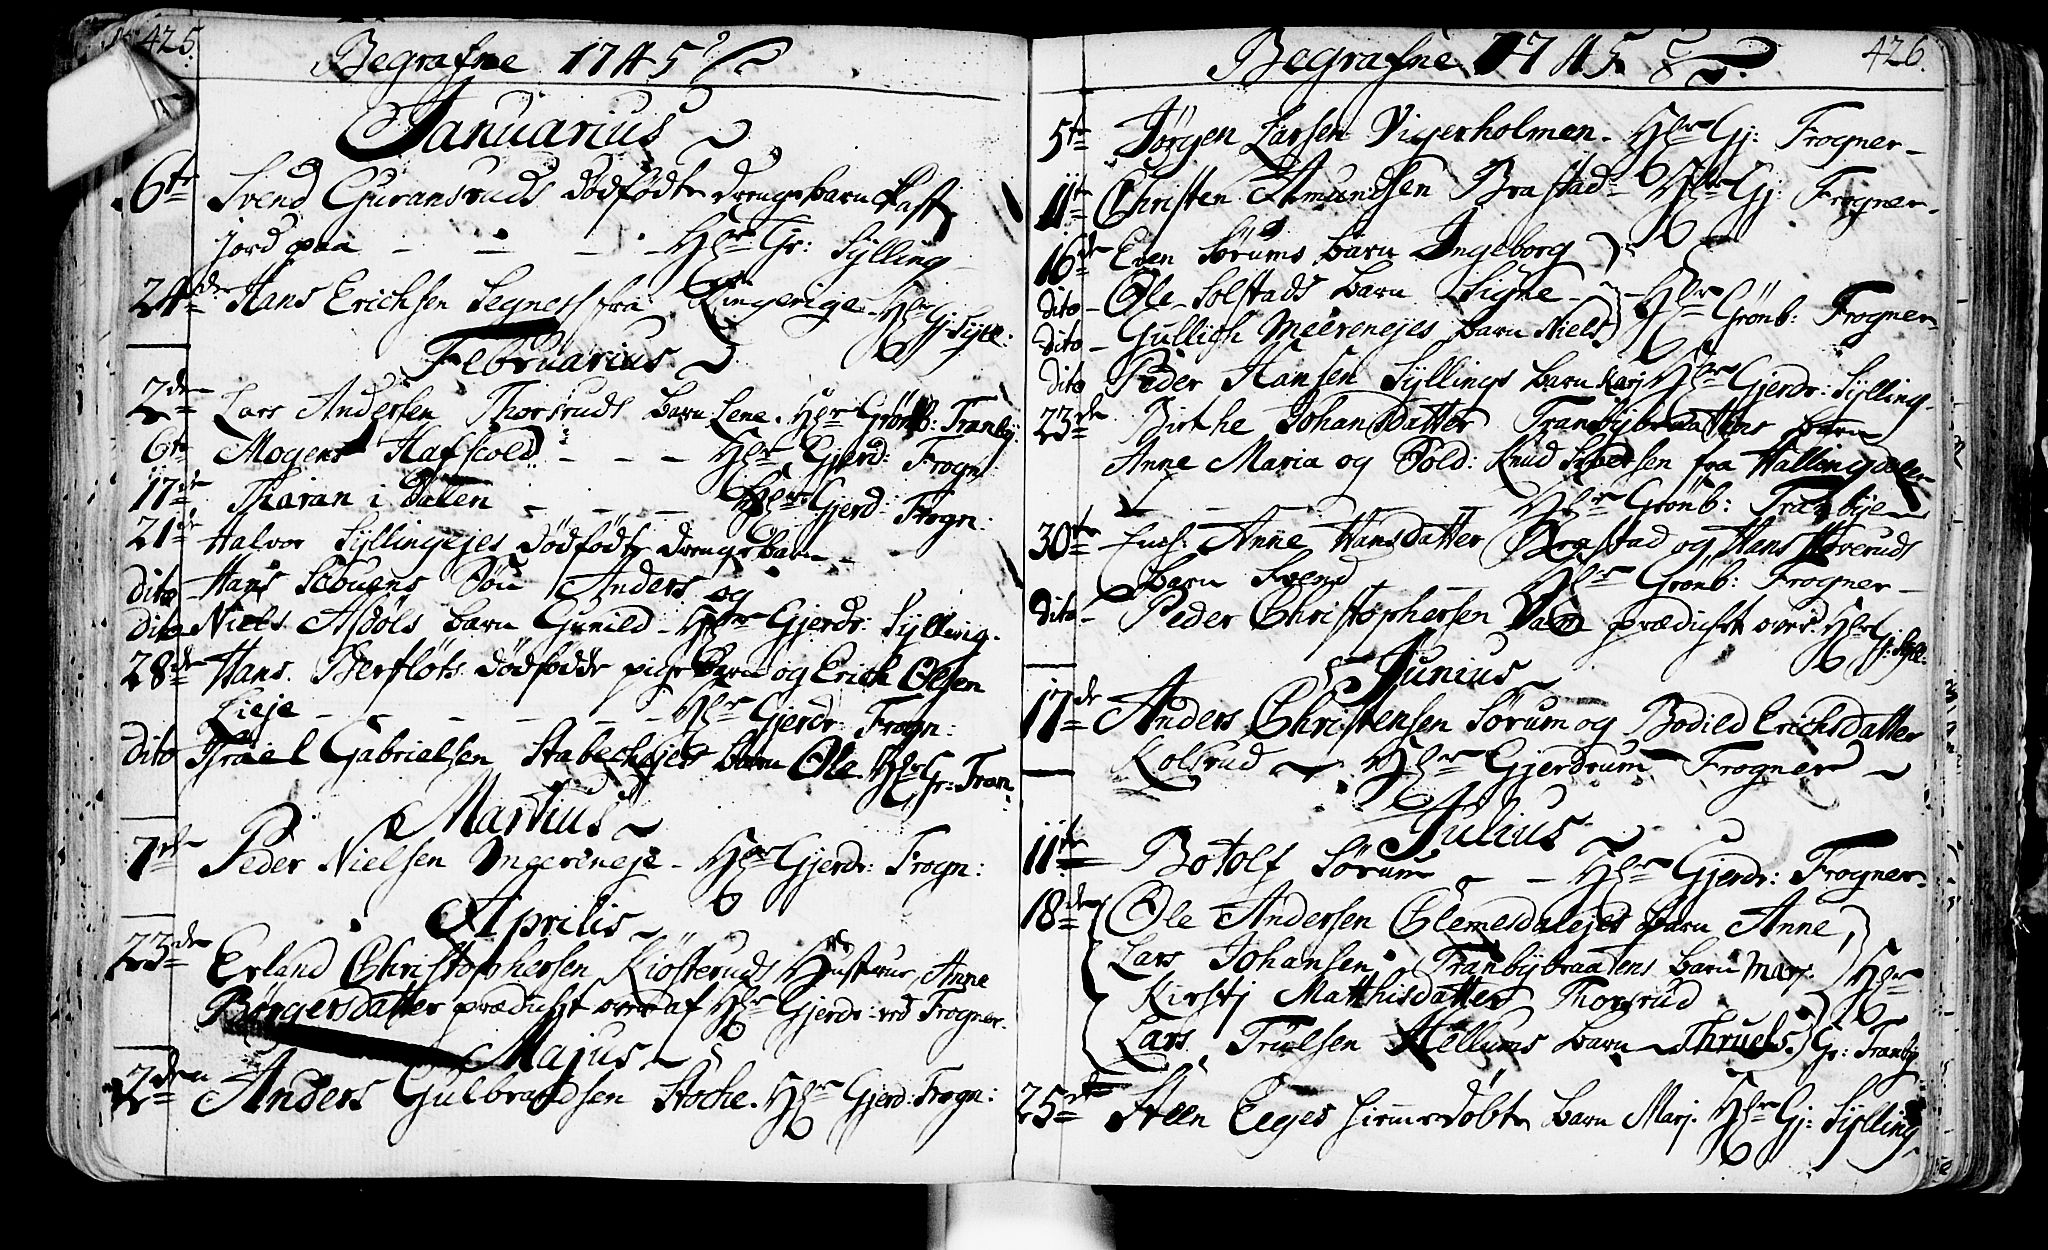 425.
Begrafne 1745
Januarius
6te Svend Guransruds dødfødte drengebarn kast
jord paa - - - - Hr Gr: Sylling
24de Hans Erichsen Segnes fra Ringerige - Hr Gj: Syll:
Februarius
2de Lars Andersen Thorsruds barn Lene. Hr Grønb: Tranby.
6te Mogens Hafscold - - - Hr Gjerd: Frogn:
17de Maran i Dalen - - - Hr Gjerd: Frogn:
21de Halvor Syllingejes dødfødte drengebarn -
dito Hans Scouens Søn Anders og
dito Niels Asdøls barn Gunild - Hr Gjerdr: Sylling.
28de Hans Berfløts dødfødde pigebarn og Erich Olsen
Lieje - - - - - Hr Gjerdr: Frogn:
dito Israel Gabrielsen Stabechejes barn Ole. Hr Gr: Tran:
Martius
7de Peder Nielsen Meereneje - Hr Gjerdr: Frogn:
Aprilis
23de Erland Christophersen Kiøsteruds Hustrue Anne
Børgersdatter prædichet over af Hr Gjerdr: ved Frogner.
Majus
2den Anders Gulbrandsen Stoche. Hr Gjerd: Frogn:
426.
Begrafne 1745
5te Jørgen Larsen Vigerholmen. Hr Gj: Frogner -
11te Christen Amundsen Brastad - Hr Gj: Frogner -
16de Even Sørums barn Ingeborg
dito - Ole Solstads barn Signe -
dito - Gullich Meerenejes barn Niels - Hr Grønb: Frogner.
dito Peder Hansen Syllings barn Karj Hr Gjerdr: Sylling.
23de Birthe Johansdatter Tranbybraattens barn
Anne Maria og Sold: Knud fra Hallingdalen
- - - Hr Grønb: Tranbye
30te Anne Hansdatter Brastad og Hans Hoveruds
barn Svend - Hr Grønb: Frogner -
dito - Peder Christophersen prædichet over. Hr Gj: Syll:
Junius
17de Anders Christensen Sørum og Bodild Erichsdatter
Kolsrud - Hr Gjerdrum Frogner
Julius
11te Botolf Sørum - - Hr Gjerdr: Frogner.
18de Ole Andersen Glemesdalejes barn Anne,
Lars Johansen Tranbybraatens barn Marj. Hr
Kirstj Matthisdatter Thorsrud
Lars Truelsen Hellums barn Thruels. Gr: Tranby.
25de Steen Eeges hiemedøbte barn Marj. Hr Gj: Sylling.